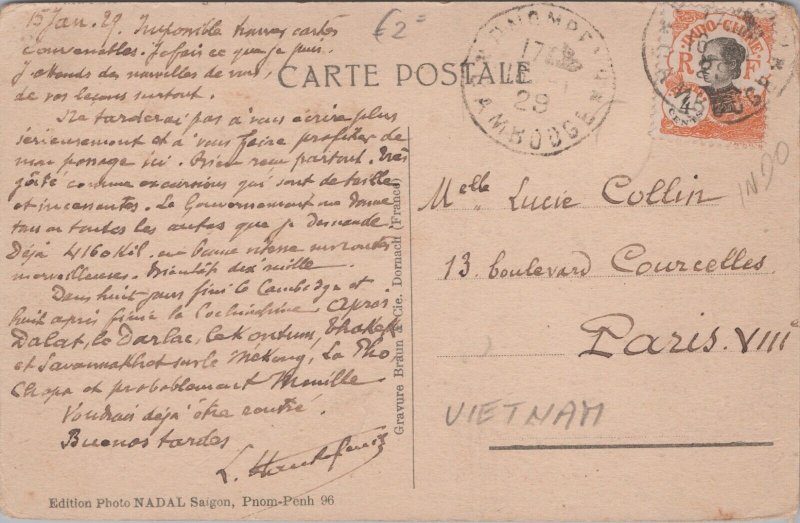 15 Jan. 29. Impossible trouver cartes
convenables. Je fais ce que je puis.
J'attends des nouvelles de vous,
de vos leçons surtout.
Ne tarderai pas à vous écrire plus
sérieusement et à vous faire profiter de
mon passage ici. Bien reçu partout. Très
gâté comme excursions qui sont de taille
et incessantes. Le Gouvernement me donne
tous ou toutes les autos que je demande.
Déjà 4160 Kil. en bonne vitesse sur routes
merveilleuses. Bientôt dix mille
Dans huit jours fini le Cambodge et
huit après finie la Cochinchine Après
Dalat, le Darlac, le Kontum, Thakek
et Savannakhet sur le Mékong, La Tho
Chapa et probablement
Voudrais déjà être rentré.
Buenos tardes
L.
€2=
CARTE POSTALE
PNOMPENH
17
29
CAMBODGE
INDO-CHINE
R F
4
CENTS
INDO
Melle Lucie Collin
13. boulevard Courcelles
Paris. VIII
VIETNAM
Gravure Braun & Cie. Dornach (France)
Edition Photo NADAL Saigon, Pnom-Penh 96